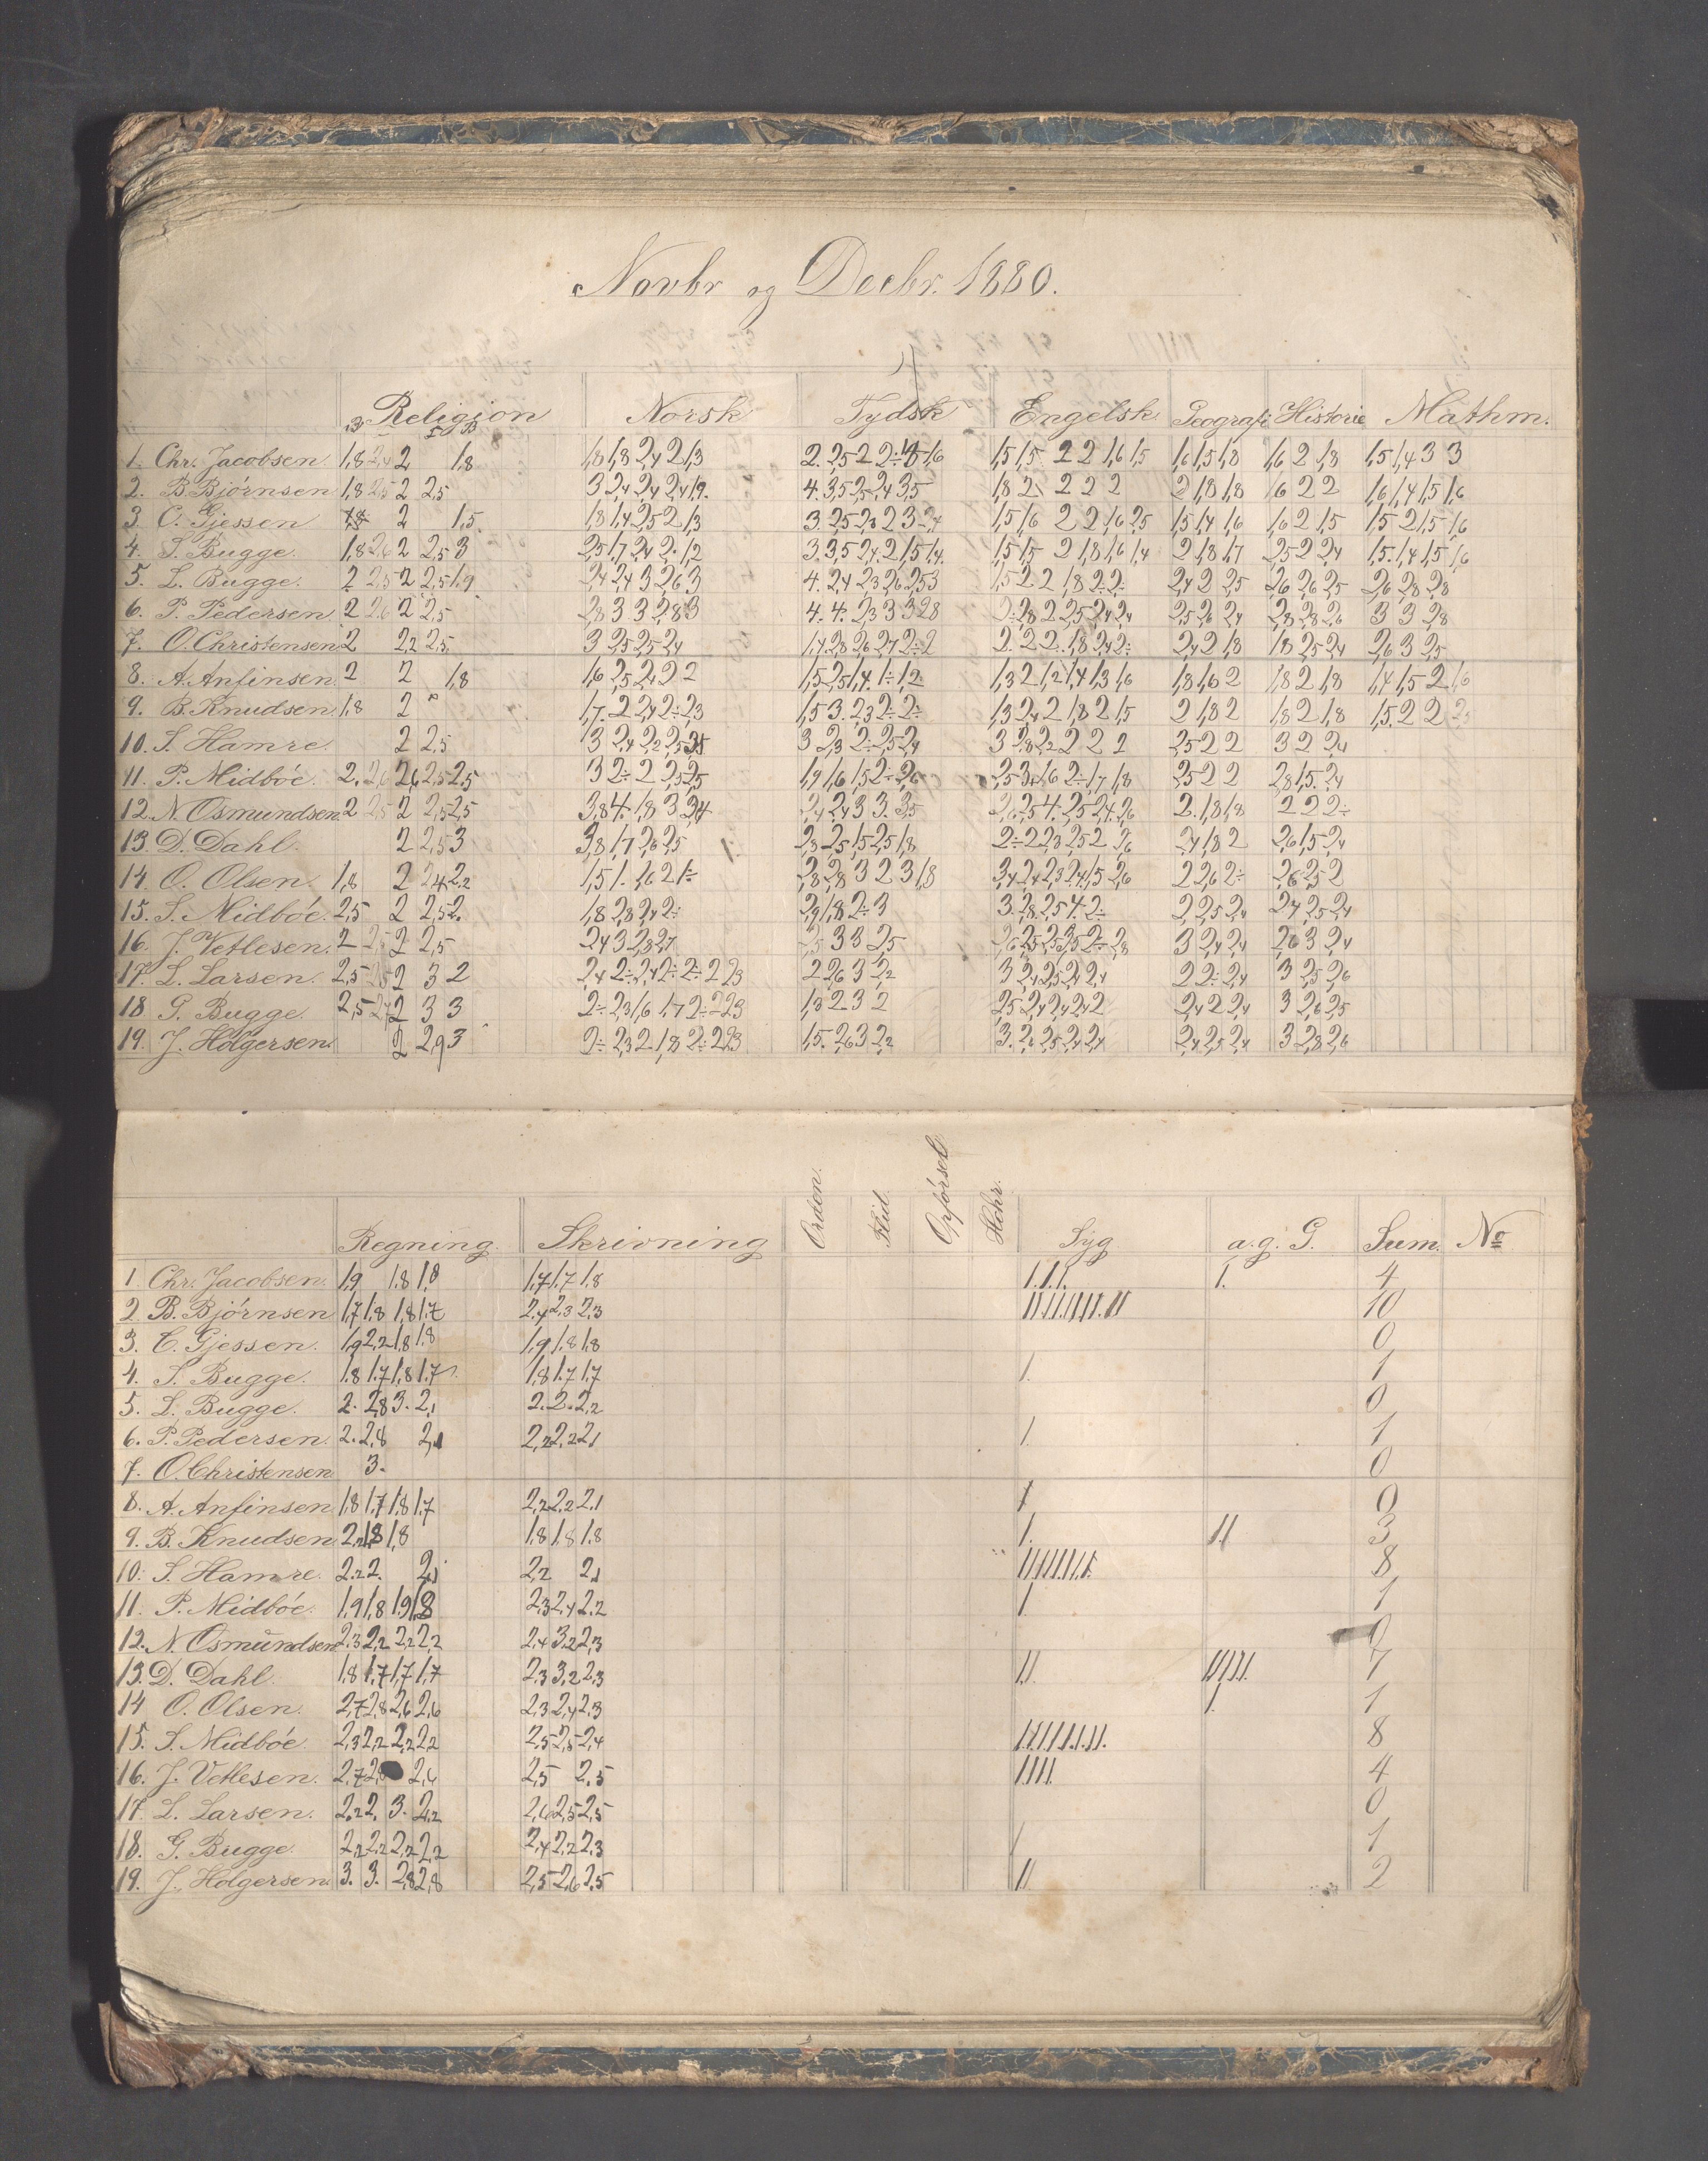 Novbr og Decbr. 1880.
Religion Norsk Tydsk Engelsk Geografi Historie Mathm.
1. Chr. Jacobsen. 1,8 2,4 2 1,8 1,8 1,8 2,4 2 1,3 1,5 1,5 2 2 1,6 1,5 1,6 1,5 1,8 1,6 2 1,8 1,5 1,4 3 3
2. B. Bjørnsen 1,8 2,5 2 2,5 3 2,4 2,4 2,4 1,9. 4. 3,5 2,5 2,4 3,5 1,8 2 2 2 2 2 1,8 1,8 1,6 2 2 1,6 1,4 1,5 1,6
3. C. Gjessen 2 1,5 1,8 1,4 2,5 2 1,3 3 2,5 2,3 2 3 2,4 1,5 1,6 2 2 1,6 2,5 1,5 1,4 1,6 1,6 2 1,5 1,5 2 1,5 1,6
4. S. Bugge. 1,8 2,6 2 2,5 3 2,5 1,7 2,4 2. 1,2 3 3,5 2,4 2 1,5 1,4. 1,5 1,5 2 1,8 1,6 1,4 2 1,8 1,7 2,5 2 2,4 1,5. 1,4 1,5 1,6
5. L. Bugge. 2 2,5 2 2,5 1,9 2,4 2,4 3 2,6 3 4. 2,4 2,3 2,6 2,5 3 1,5 2 2 1,8 2 2 2,4 2 2,5 2,6 2,6 2,5 2,6 2,8 2,8
6. P. Pedersen 2 2,6 2 2,5 2,8 3 3 2,8 3 4. 4. 2,3 3 3 2,8 2÷ 2,8 2 2,5 2,4 2,4 2,5 2,6 2,4 2,8 2,8 2,6 3 3 2,8
7. O. Christensen 2 2,2 2,5 3 2,5 2,5 2,4 1,4 2,8 2,6 2,7 2÷ 2 2. 2 2. 1,8 2,4 2÷ 2,4 2 1,8 1,8 2,5 2,4 2,6 3 2,5
8. A. Anfinsen. 2 2 1,8 1,6 2,5 2,4 2 2 1,5 2,5 1,4. 1÷ 1,2 1,3 2 1,2 1,4 1,3 1,6 1,8 1,6 2 1,8 2 1,8 1,4 1,5 2 1,6
9. B. Knudsen. 1,8 2 1,7. 2 2,4 2÷ 2,3 1,5 3. 2,3 2÷ 2÷ 1,3 2,4 2 1,8 2 1,5 2 1,8 2 1,8 2 1,8 1,5. 2 2
10. S. Hamre. 2 2,5 3 2,4 2,2 2,5 3 2,3 2÷ 2,5 2,4 3 2,8 2,2 2 2 2 2,5 2 2 3 2 2,4
11. P. Midbøe. 2. 2,6 2,6 2,5 2,5 3 2÷ 2 2,5 2,5 1,9 1,6 1,5 2÷ 2,6 2,5 2 2 2,8 1,5. 2,4
12. N. Osmundsen. 2 2,5 2 2,5 2,5 3,8 4. 1,8 3 3,4 2,4 2,4 3 3. 3,5 2,6 2,5 4. 2,5 2,4 2,6 2. 1,8 1,8 2 2 2÷
13. D. Dahl. 2 2,5 3 3,8 1,7 2,6 2,5 2,3 2,5 1,5 2,5 1,8 2÷ 2 2,3 2,5 2 2,6 2,4 1,8 2 2,6 1,5 2,4
14. O. Olsen. 1,8 2 2,4 2,2 1,5 1. 1,6 2 1÷ 2,8 2,8 3 2 3 1,8 3,4 2,4 2,3 2,4 1,5 2,6 2 2,6 2÷ 2,6 2,5 2
15. S. Midbøe. 2,5 2 2,5 2. 1,8 2,8 2,4 2÷ 2,9 1,8 2÷ 3 3. 2,8 2,5 4. 2÷ 2 2,5 2,4 2,4 2,5 2,4
16. J. Vetlesen. 2 2 2,5 2,4 3 2,8 2,7 2,5 3 3 2,5 2,6 2,5 2,5 3,5 2÷ 2,8 3 2,4 2,4 2,6 3 2,4
17. L. Larsen. 2,5 2,5 2 3 2 2,4 2÷ 2,4 2÷ 2÷ 2 2,3 2 2,6 3 2,2 3 2,4 2,5 2,4 2,4 2 2÷ 2,4 3 2,5 2,6
18. G. Bugge. 2,5 2,7 2 3 3 2÷ 2,3 1,6 1,7 2÷ 2 2,3 1,8 2 3 2 2,5 2,4 2,4 2,4 2 2,4 2 2,4 3 2,6 2,5
19. J. Holgersen. 2 2,9 3 2÷ 2,3 2. 1,8 2÷ 2 2,3 1,5. 2,6 3 2,2 3. 2,6 2,5 2,4 2,4 2,4 2,5 2,4 3 2,8 2,6
Regning. Skrivning Orden. Flid. Opførsel Hchr. Syg a.g. G. Sum. No
1 Chr. Jacobsen. 1,9 1,8 1,8 1,7 1,7 1,8 1.1.1. 1. 4
2 B. Bjørnsen 1,7 1,8 1,8 1,7 2,4 2,3 2,3 10
3. C. Gjessen. 1,9 2,2 1,8 1,8 1,9 1,8 1,8 0
4. S. Bugge. 1,8 1,7 1,8 1,7 1,8 1,7 1,7 1. 1
5. L. Bugge. 2. 2,8 3. 2,1 2. 2. 2,2 0
6. P. Pedersen. 2. 2,8 2,1 2,2 2,2 2,1 1. 1
7. O. Christensen 3. 0
8. A. Anfinsen. 1,8 1,7 1,8 1,7 2,2 2,2 2,1 0
9. B. Knudsen 2,2 1,8 1,8 1,8 1,8 1,8 1. 11 3
10. S. Hamre. 2,2 2. 2,1 2,2 2,1 8
11. P. Midbøe. 1,9 1,8 1,9 1,8 2,3 2,4 2,2 1 1
12. N. Osmundsen 2,3 2,2 2,2 2,2 2,4 3,2 2,3 0
13. D. Dahl. 1,8 1,7 1,7 1,7 2,3 3,2 2,3 11. 7
14 O. Olsen. 2,7 2,8 2,6 2,6 2,3 2,4 2,3 1. 1
15. S. Midbøe. 2,3 2,2 2,2 2,2 2,5 2,5 2,4 8
16. J. Vetlesen. 2,7 2,6 2,5 2,5 1111. 4
17. L. Larsen. 2,2 2. 3. 2,2 2,6 2,5 2,5 0
18. G. Bugge. 2,2 2,2 2,2 2,2 2,4 2,2 2,3 1 1
19. J. Holgersen. 3. 3. 2,8 2,8 2,5 2,6 2,5 11 2